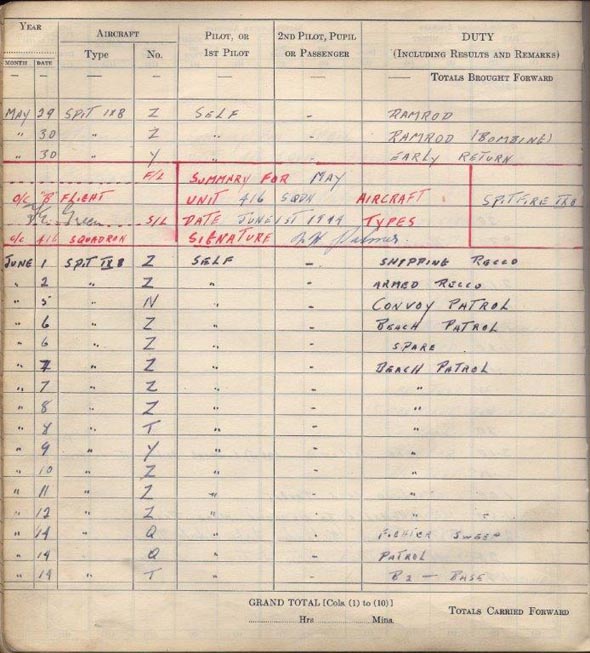 YEAR AIRCRAFT PILOT, OR 2ND PILOT, PUPIL DUTY
MONTH DATE Type No. 1ST PILOT OR PASSENGER (INCLUDING RESULTS AND REMARKS)
— — — — — — — TOTALS BROUGHT FORWARD
MAY 29 SPIT IXB Z SELF - RAMROD
" 30 " Z " - RAMROD (BOMBING)
" 30 " Y " EARLY RETURN
F/L SUMMARY FOR MAY
O/C B FLIGHT UNIT 416 SQDN AIRCRAFT SPITFIRE IXB
Green S/L DATE JUNE 1ST 1944 TYPES
O/C 416 SQUADRON SIGNATURE Palmer
JUNE 1 SPIT IXB Z SELF - SHIPPING RECCO
" 2 " Z " - ARMED RECCO
" 5 " N " - CONVOY PATROL
" 6 " Z " - BEACH PATROL
" 6 " Z " - SPARE
" 7 " Z " - BEACH PATROL
" 7 " Z " - "
" 8 " Z " - "
" 8 " T " - "
" 9 " Y " - "
" 10 " Z " - "
" 11 " Z " - "
" 12 " Z " - "
" 14 " Q " - FIGHTER SWEEP
" 14 Q " - PATROL
" 14 " T " - B2 — BASE
GRAND TOTAL [Cols. (1) to (10)] TOTALS CARRIED FORWARD
Hrs Mins.